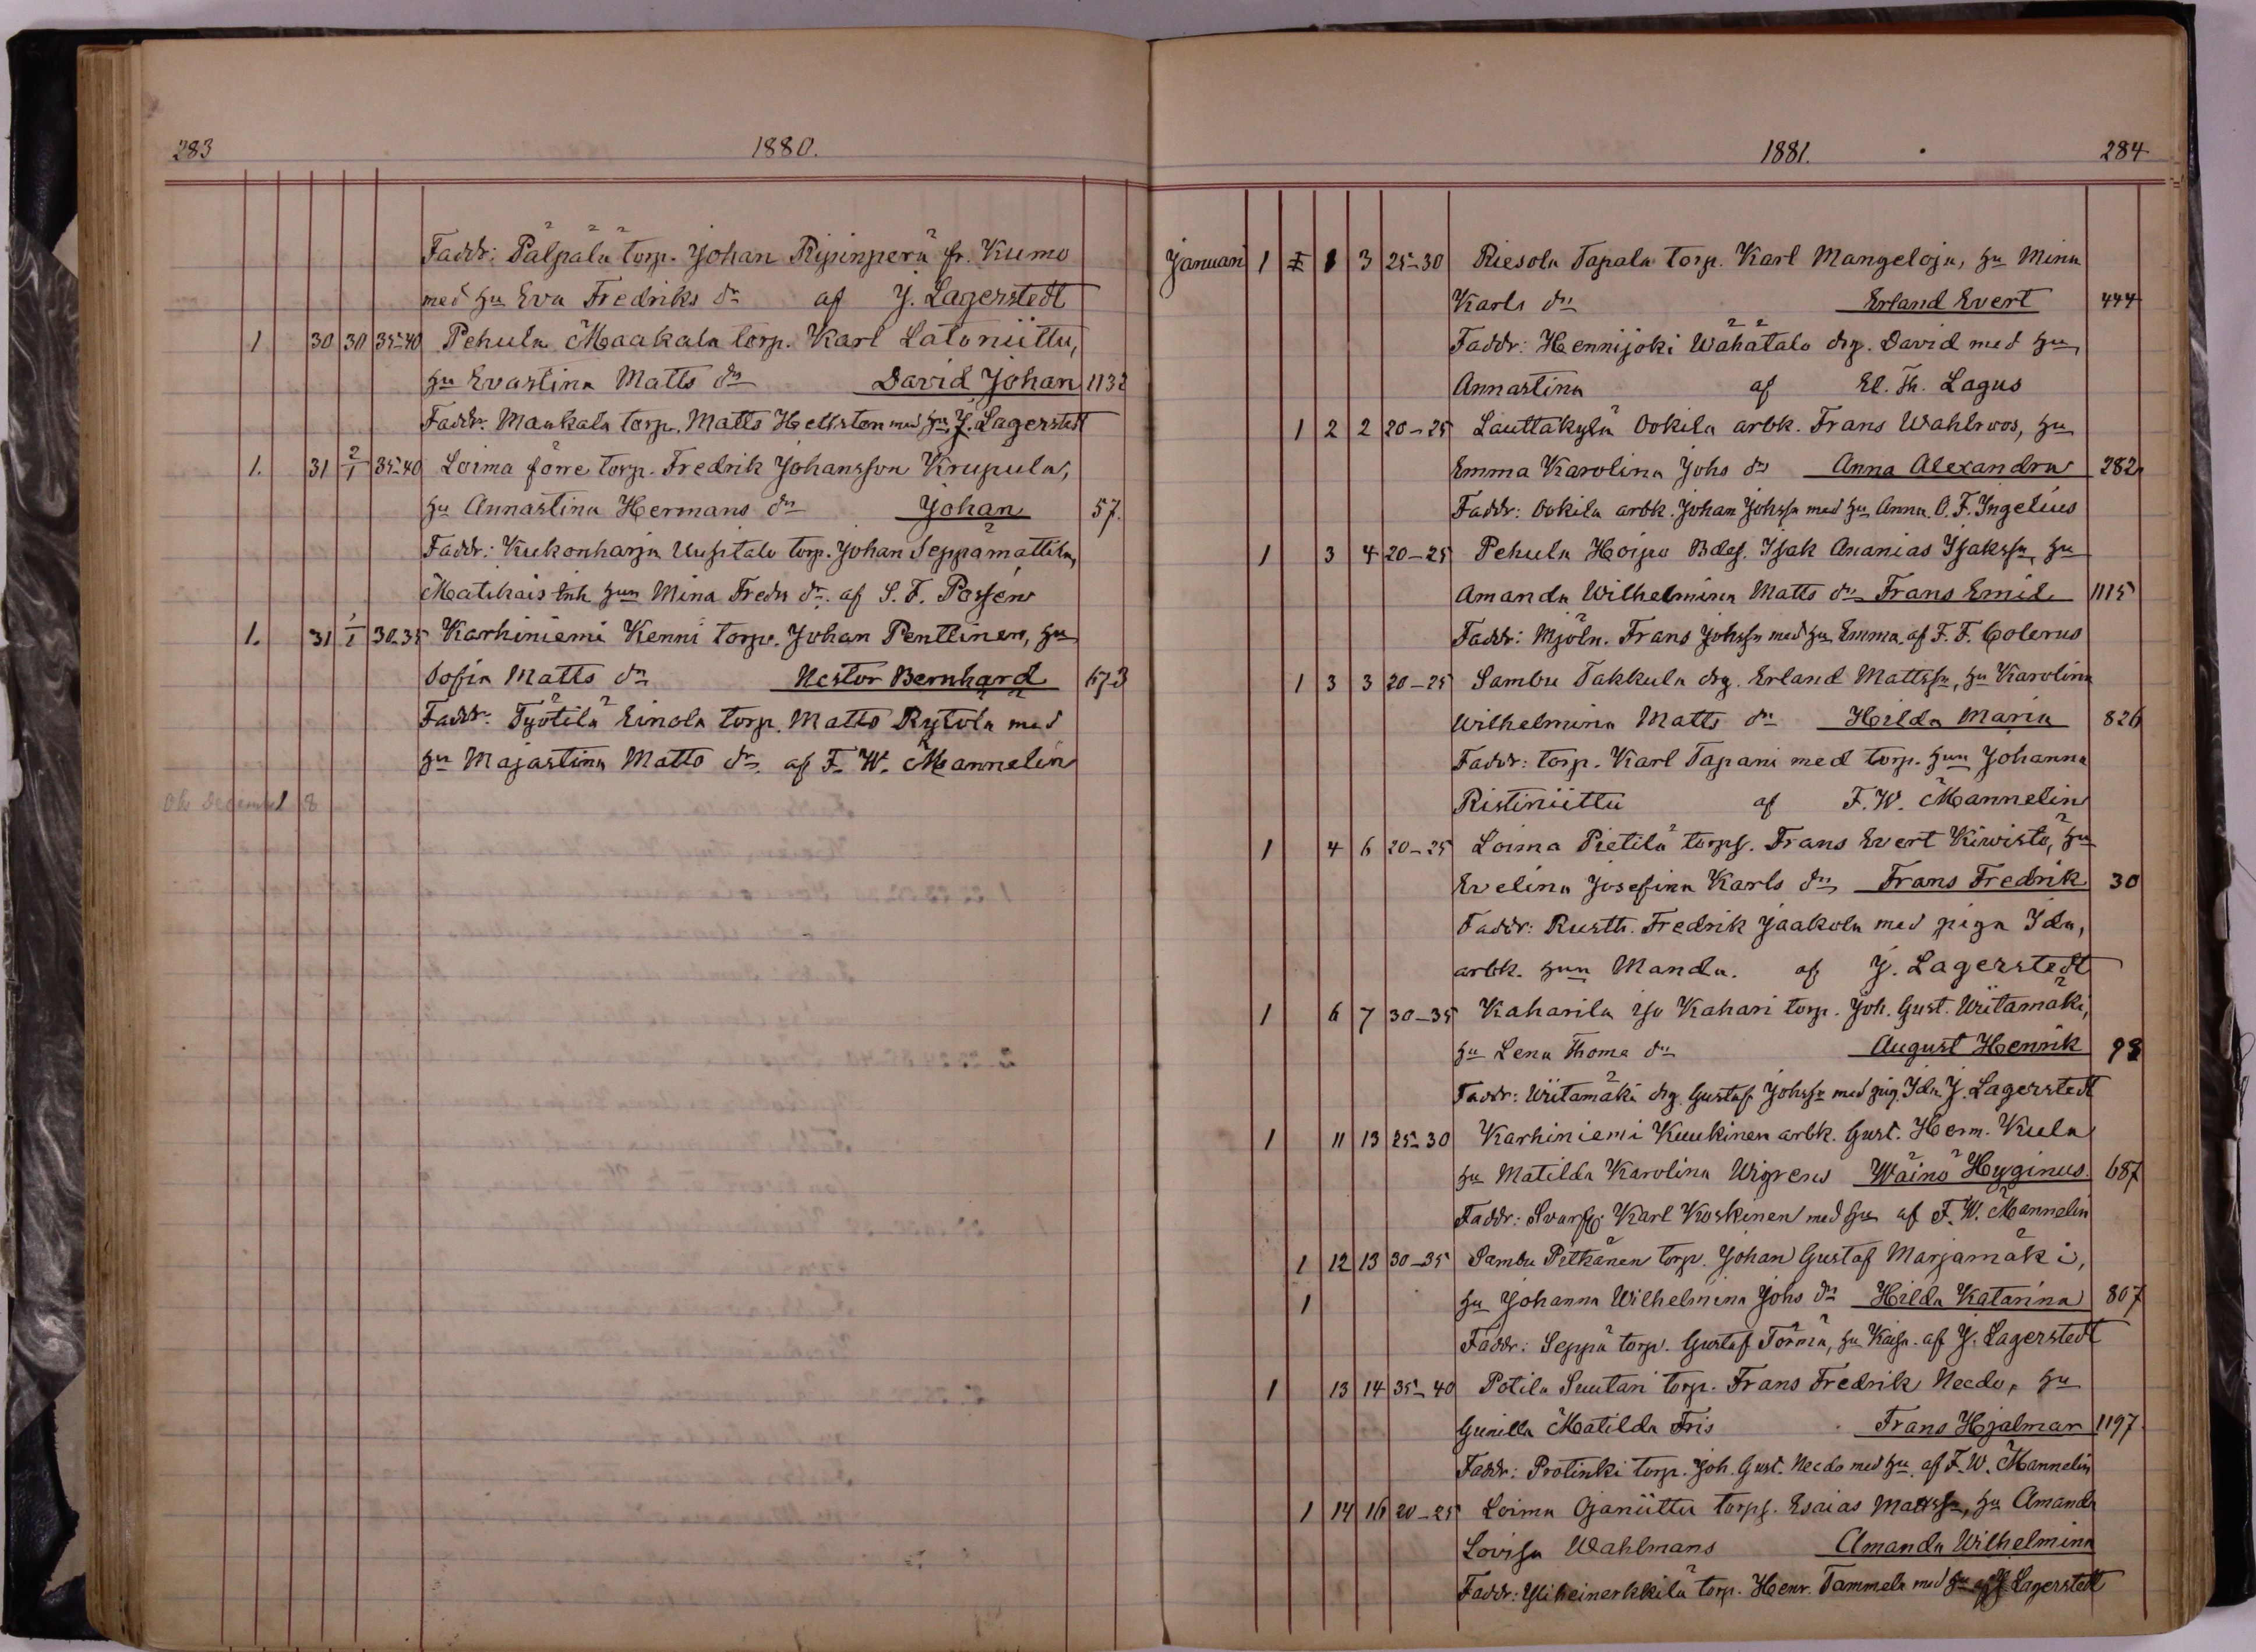 283 1880.
Faddr: Pälpälä torp. Johan Ripinperä fr. Kumo
med hu Eva Fredriks dr af J. Lagerstedt
1 30 30 35-40 Pehula Maakala torp. Karl Latoniittu,
hu Evastina Matts dr David Johan 1132
Faddr: Maukala torp. Matts Hellsten med hu, J. Lagerstedt
1. 31 2/1 35-40 Loima förre torp. Fredrik Johansson Krupula,
hu Annastina Hermans dr Johan 57.
Faddr: Kukonharja Uusitalo torp. Johan Seppämattila,
Matihais enk hun Mina Fredr dr. af S. F. Possén
1. 31 1/1 30-35 Karhiniemi Kenni torp. Johan Penttinen, hu
Sofia Matts dr Nestor Bernhard 673
Faddr: Työtilä Einola torp. Matts Rytölä med
hu Majastina Matts dr. af F. W. Mannelin
December 8
1881. 284
Januari 1 1 1 3 25-30 Riesola Tapala torp. Karl Mangeloja, hu Mina
Karls dr Erland Evert 444
Faddr: Hennijoki Wähätalo drg. David med hu,
Annastina af El. Th. Lagus
1 2 2 20-25 Lauttakylä Ookila arbk. Frans Wahlroos, hu
Emma Karolina Johs dr Anna Alexandra 282
Faddr: Ookila arbk. Johan Johssn med hu Anna. O. F. Ingelius
1 3 4 20-25 Pehula Hoipo Bdes. Isak Ananias Isakssn, hu
Amanda Wilhelmina Matts dr Frans Emil 1115
Faddr: Mjöln. Frans Johssn med hu Emma. af F. F. Colerus
1 3 3 20-25 Sambu Takkula drg. Erland Mattssn, hu Karolina
Wilhelmina Matts dr Hilda Maria 826
Faddr: torp. Karl Tapani med torp. hun Johanna
Ristiniittu af F. W. Mannelin
1 4 6 20-25 Loima Pietilä torps. Frans Evert Kiwistö, hu
Evelina Josefina Karls dr Frans Fredrik 30
Faddr: Rusth. Fredrik Jaakola med piga Ida,
arbk. hun Manda. af J. Lagerstedt
1 6 7 30-35 Kaharila iso Kahari torp. Joh. Gust. Wiitamäki,
hu Lena Thoma dr August Henrik 98
Faddr: Wiitamäki drg. Gustaf Johssn med pig. Ida J. Lagerstedt
1 11 13 25-30 Karhiniemi Kuukinen arbk. Gust. Herm. Kula
hu Matilda Karolina Wigrens Wäinö Hyginus. 687
Faddr: Svarfv. Karl Koskinen med hu af F. W. Mannelin
1 12 13 30-35 Sambu Pitkänen torp. Johan Gustaf Marjamäki,
1 hu Johanna Wilhelmina Johs dr Hilda Katarina 807
Faddr: Seppä torp. Gustaf Törmä, hu Kaisa. af J. Lagerstedt
1 13 14 35-40 Potila Suutari torp. Frans Fredrik Necdo, hu
Gunilla Matilda Fris Frans Hjalmar 1197.
Faddr: Protinki torp. Joh. Gust. Necdo med hu. af F. W. Mannelin
1 14 16 20-25 Loima Ojaniittu torps. Esaias Mattssn, hu Amanda
Lovisa Wahlmans Amanda Wilhelmina
Faddr: Yliheinerkkilä torp. Henr. Tammela med hu af J. Lagerstedt